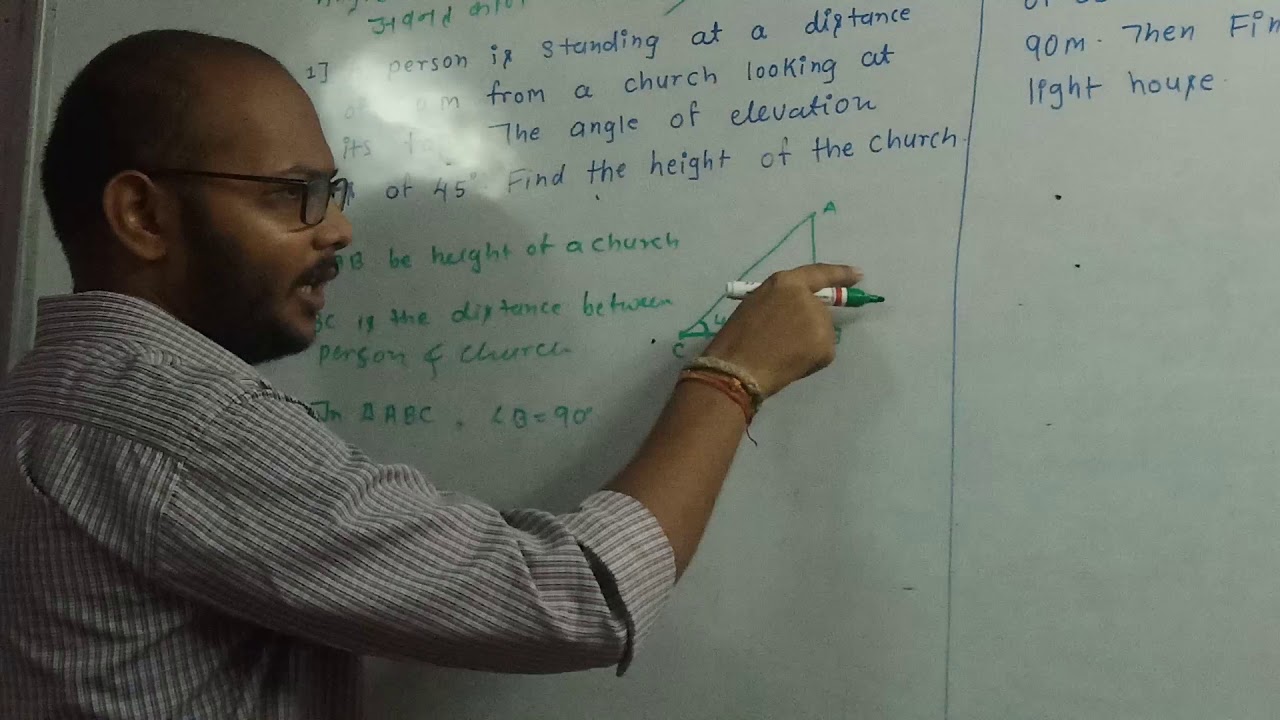 अवनत कोण
1] person is standing at a distance
m from a church looking at
its The angle of elevation
of 45°. Find the height of the church.
A
AB be height of a church
BC is the distance between
C
person & church
In ΔABC, ∠B = 90°
90m. Then Fin
light house.